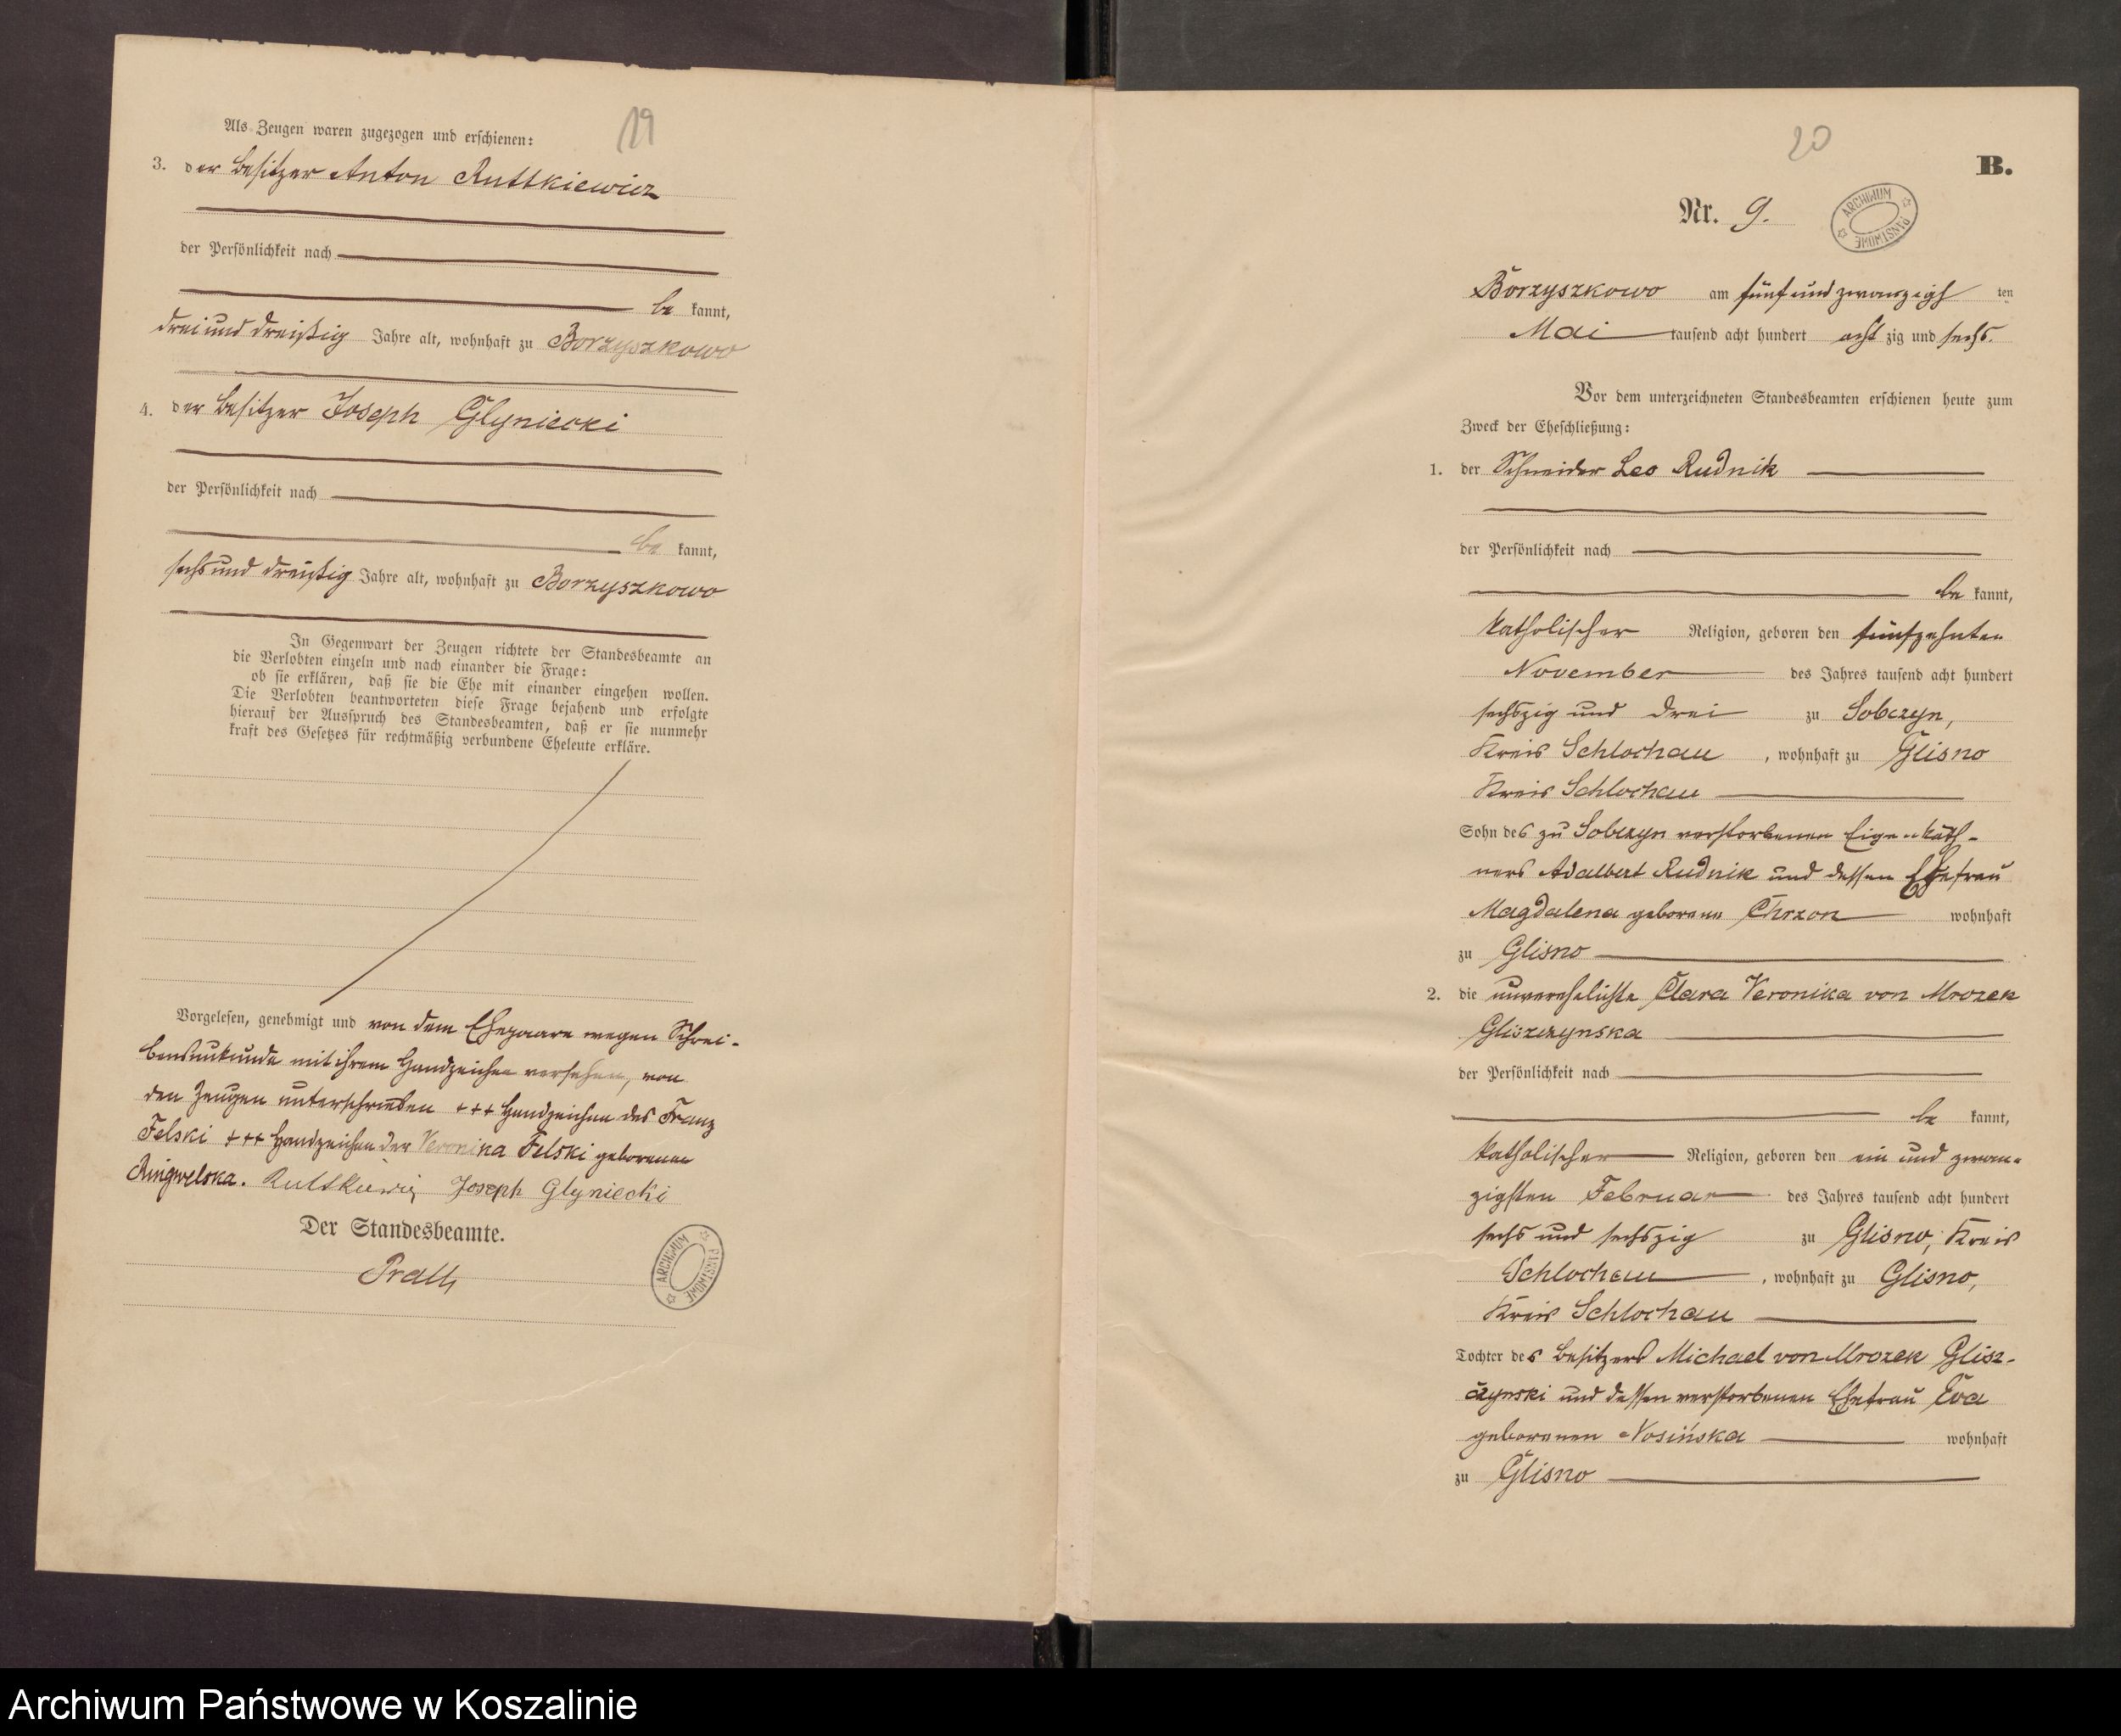 19
Als Zeugen waren zugezogen und erschienen:
3. der Besitzer Anton Ruttkiewicz
der Persönlichkeit nach
be kannt,
drei und dreißig Jahre alt, wohnhaft zu Borzyszkowo
4. der Besitzer Joseph Glyniecki
der Persönlichkeit nach
be kannt,
sechs und dreißig Jahre alt, wohnhaft zu Borzyszkowo
In Gegenwart der Zeugen richtete der Standesbeamte an
die Verlobten einzeln und nach einander die Frage:
ob sie erklären, daß sie die Ehe mit einander eingehen wollen.
Die Verlobten beantworteten diese Frage bejahend und erfolgte
hierauf der Ausspruch des Standesbeamten, daß er sie nunmehr
kraft des Gesetzes für rechtmäßig verbundene Eheleute erkläre.
Vorgelesen, genehmigt und von dem Ehepaare wegen Schrei-
bensunkunde mit ihrem Handzeichen versehen, von
den Zeugen unterschrieben +++ Handzeichen des Franz
Felski +++ Handzeichen der Veronika Felski geborenen
Ruttkiewicz Joseph Glyniecki
Der Standesbeamte.
ARCHIWUM PAŃSTWOWE
20
B.
Nr. 9.
ARCHIWUM PAŃSTWOWE
Borzyszkowo am fünf und zwanzigs ten
Mai tausend acht hundert acht zig und sechs.
Vor dem unterzeichneten Standesbeamten erschienen heute zum
Zweck der Eheschließung:
1. der Schneider Leo Rudnik
der Persönlichkeit nach
be kannt,
katholischer Religion, geboren den fünfzehnten
November des Jahres tausend acht hundert
sechszig und drei zu Sobczyn,
Kreis Schlochau, wohnhaft zu Glisno
Kreis Schlochau
Sohn des zu Sobczyn verstorbenen Eigenkäth-
ners Adalbert Rudnik und dessen Ehefrau
Magdalena geborene Chrzon wohnhaft
zu Glisno
2. die unverehelichte Clara Veronika von Mrozek
Gliszczynska
der Persönlichkeit nach
be kannt,
katholischer Religion, geboren den ein und zwan-
zigsten Februar des Jahres tausend acht hundert
sechs und sechszig zu Glisno, Kreis
Schlochau, wohnhaft zu Glisno,
Kreis Schlochau
Tochter des Besitzers Michael von Mrozek Glisz-
czynski und dessen verstorbenen Ehefrau Eva
geborenen Nosińska wohnhaft
zu Glisno
Archiwum Państwowe w Koszalinie